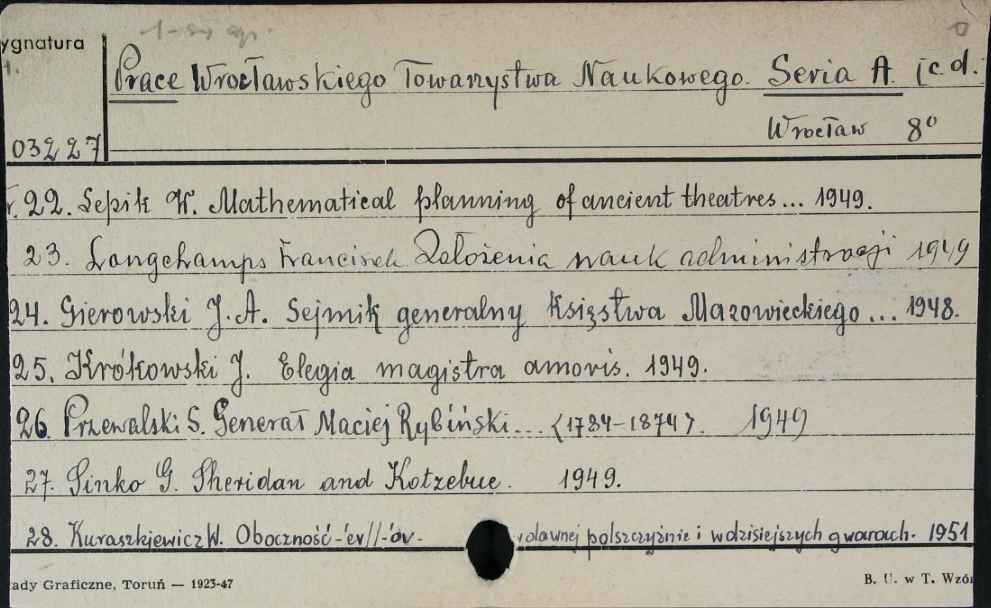 1-szy egz.
ygnatura
Prace Wrocławskiego Towarzystwa Naukowego. Seria A. [c.d.
Wrocław 8°
03227
r. 22. Sepik W. Mathematical planning of ancient theatres... 1949.
23. Longchamps Franciszek Założenia nauk administracji 1949
24. Gierowski J. A. Sejmik generalny Księstwa Mazowieckiego... 1948.
25. Krókowski J. Elegia magistra amoris. 1949.
26. Przewalski S. Generał Maciej Rybiński... <1784-1874>. 1949
27. Sinko G. Sheridan and Kotzebue. 1949.
28. Kuraszkiewicz W. Oboczność -'ev//-'ov- dawnej polszczyźnie i w dzisiejszych gwarach. 1951
ady Graficzne, Toruń — 1923-47
B. U. w T. Wzór